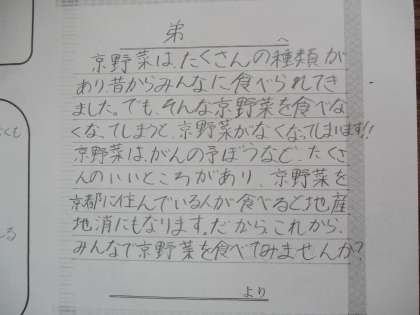 弟
へ
京野菜は、たくさんの種類が
あり、昔からみんなに食べられてき
ました。でも、そんな京野菜を食べな
くなってしまうと、京野菜がなくなってしまいます!!
京野菜は、がんの予ぼうなど、たくさ
んのいいところがあり、京野菜を
京都に住んでいる人が食べると地産
地消にもなります。だから、これから、
みんなで京野菜を食べてみませんか?
より
くも
る